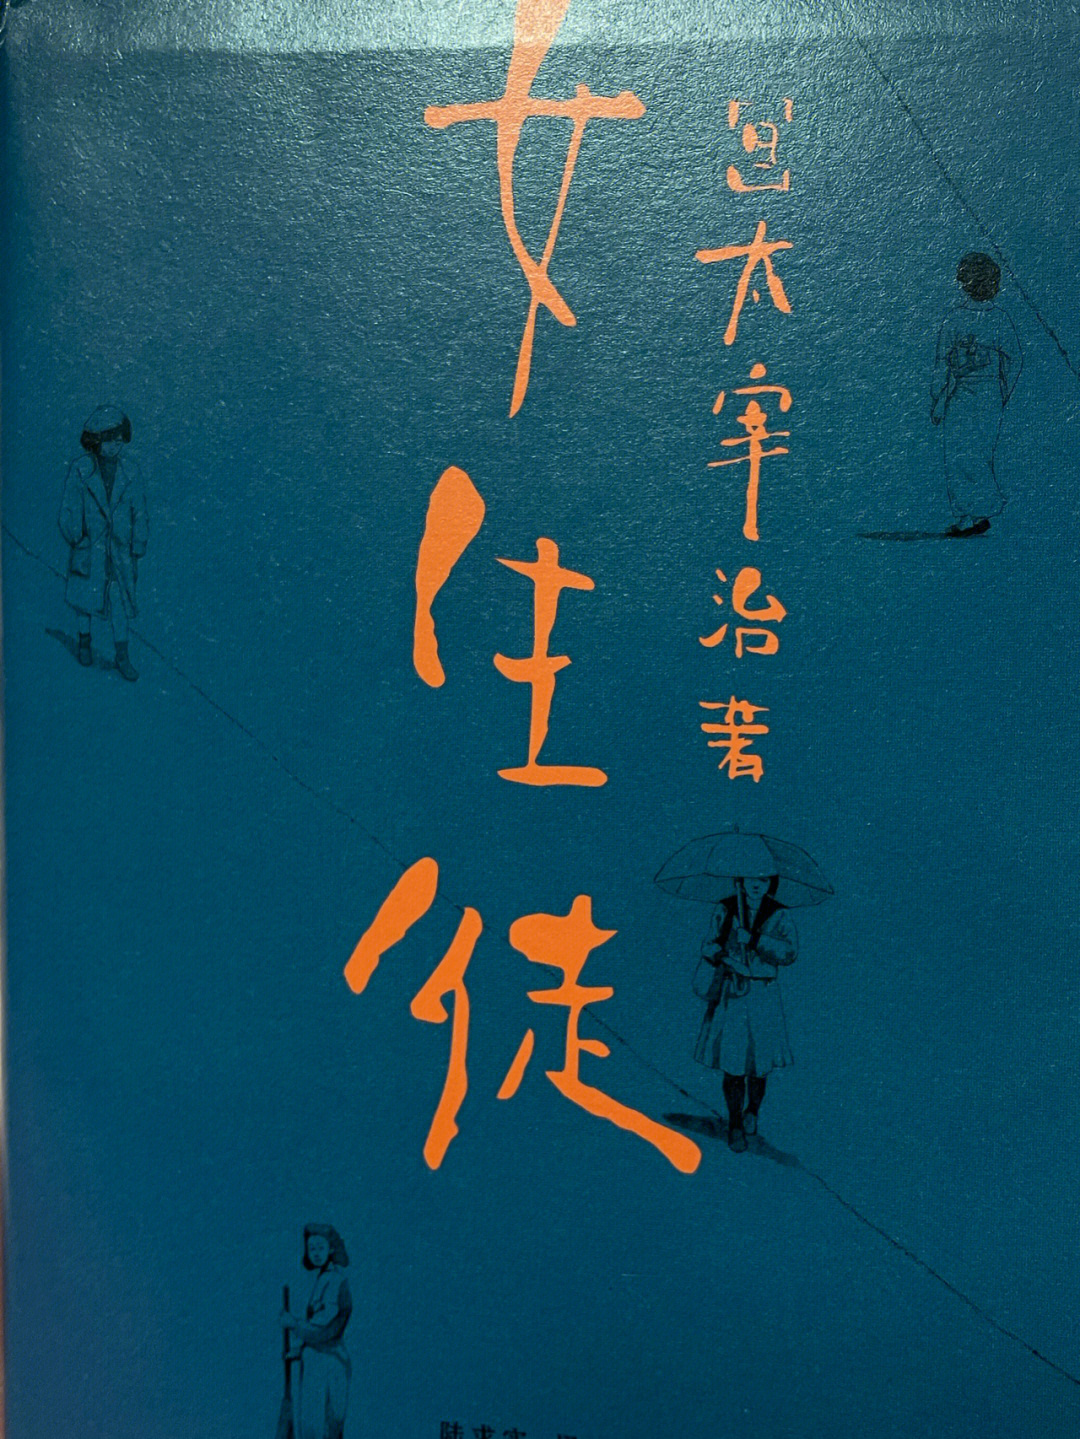 [日]太宰治著
女生徒
陆求实 译